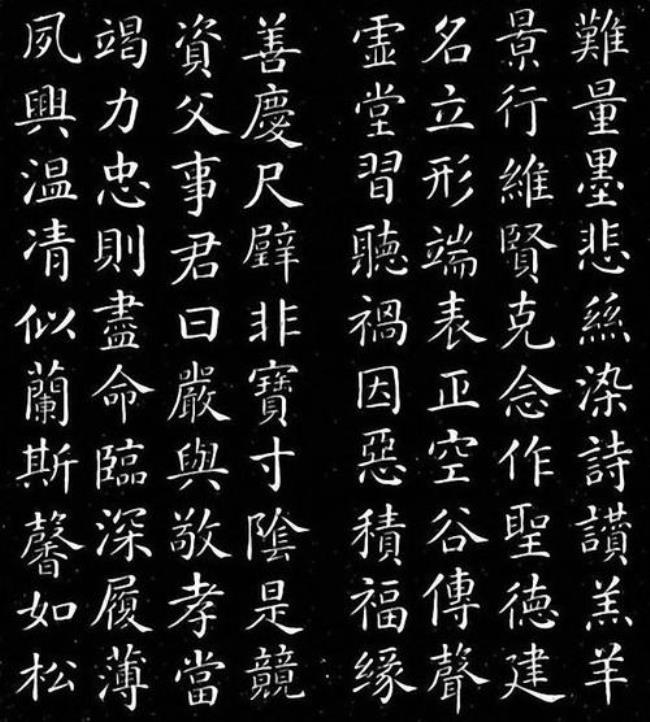 難量墨悲絲染詩讃羔羊
景行維賢克念作聖德建
名立形端表正空谷傳聲
虚堂習聽禍因惡積福緣
善慶尺璧非寶寸陰是競
資父事君曰嚴與敬孝當
竭力忠則盡命臨深履薄
夙興温凊似蘭斯馨如松